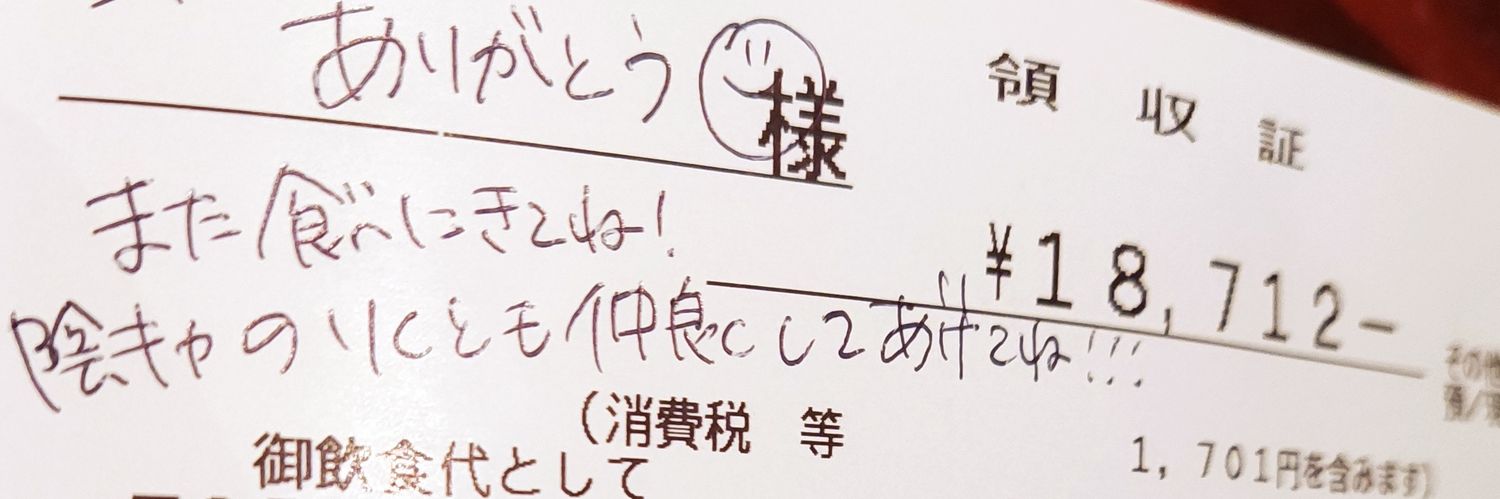 ありがとう 様
領収証
また食べにきてね!
¥18,712-
陰キャのりくとも仲良くしてあげてね!!!
(消費税 等 1,701円を含みます)
御飲食代として